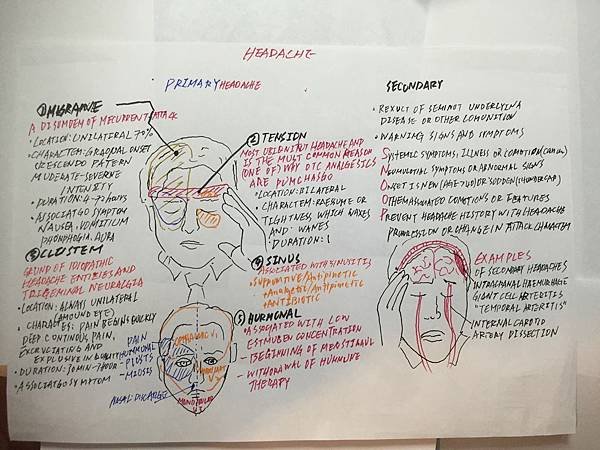 HEADACHE
PRIMARY HEADACHE
① MIGRAINE
A DISORDER OF RECURRENT ATTACK
• LOCATION: UNILATERAL 70%
• CHARACTER: GRADUAL ONSET
CRESCENDO PATERN
MUDERATE-SEVERNE
INTENSITY
• DURATION: 4-72 hours
• ASSOCIATGO SYMPTOM
NAUSEA, VOMITIUM
PHONPHOGIA, AURA
② TENSION
MOST UBIQNITUT HEADACHE AND
IS THE MULT COMMON REASON
(ONE OF) WHY OTC ANALGESICS
ARE PUMCHASGO
• LOCATION: BILATERAL
CHARACTEM: RAESUME OR
TIGHTNESS WHICH WAXES
AND WANES
• DURATION: 1
③ CLUSTEM
GRUND OF IDIOPATHIC
HEADACHE ENTITIES AND
TRIGEMINAL NEURALGIA
• LOCATION: ALWAIS UNILATERAL
(AMOUND EYE)
• CHARACTES: PAIN BEGINS QUICKLY
DEEP CONTINOUS PAIN,
EXCRUCIATING AND
EXPLOSIVE IN QUALITY
• DURATION: 30MIN-7HOUR
• ASSOCIATGO SYMPTOM
PAIN
- PLOSTS
- MIOSIS
NASAL DISCARGE
④ SINUS
ASSOCIATED WITH SINUITIES
+ ANTIBIOTIC
⑤ HURMUNAL
• ASSOCIATED WITH LOW
ESTMUBEN CONCENTRATION
• (BEGINNING OF MENSTIMUL
• WITHDRAWAL OF HUNMUNE
THERAPY
SECONDARY
• REXULT OF SEMIMOT UNDERLYINA
DISEASE OR OTHER COMUNITION
• WARNING SIGNS AND SYMPTOMS
SYSTEMIC SYMPTOMS, ILLNESS OR COMOTIOM (CANCUR)
NEUMULTIUM SYMPTOMS OR ABNORMAL SIGNS
ONSET IS NEW (AGE>50) OR SUDDEN (THUNDERSAP)
OTHEMASSIATED COMOTIONS OR FEATURES
PREVENT HEADACHE HISTORY WITH HEADACHE
PROGRESSION OR CHANGE IN ATTACK CHARACTEM
EXAMPLES
OF SECONDARY HEADACHES
INTRACMANAL HAEMORMHAGE
GIANT CELL ARTERITIS
"TEMPORAL ARTERITIS"
INTERNAL CAROTID
ARTERY DISSECTION